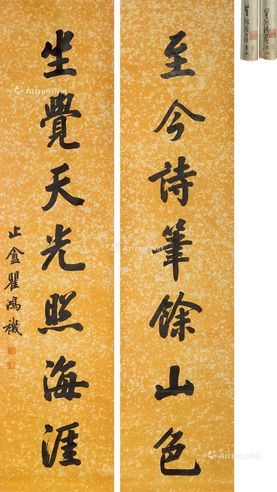 至今詩筆餘山色
坐覺天光照海涯
止盦瞿鴻禨